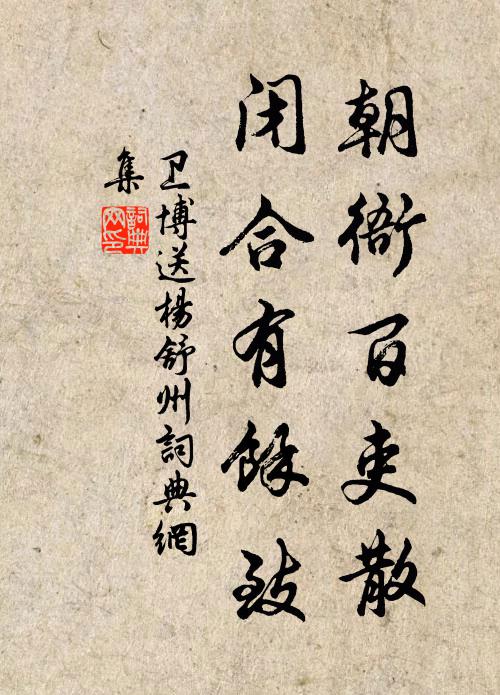 朝衙百吏散
闭合有餘致
卫博送楊舒州詞典網
集
詞典網印